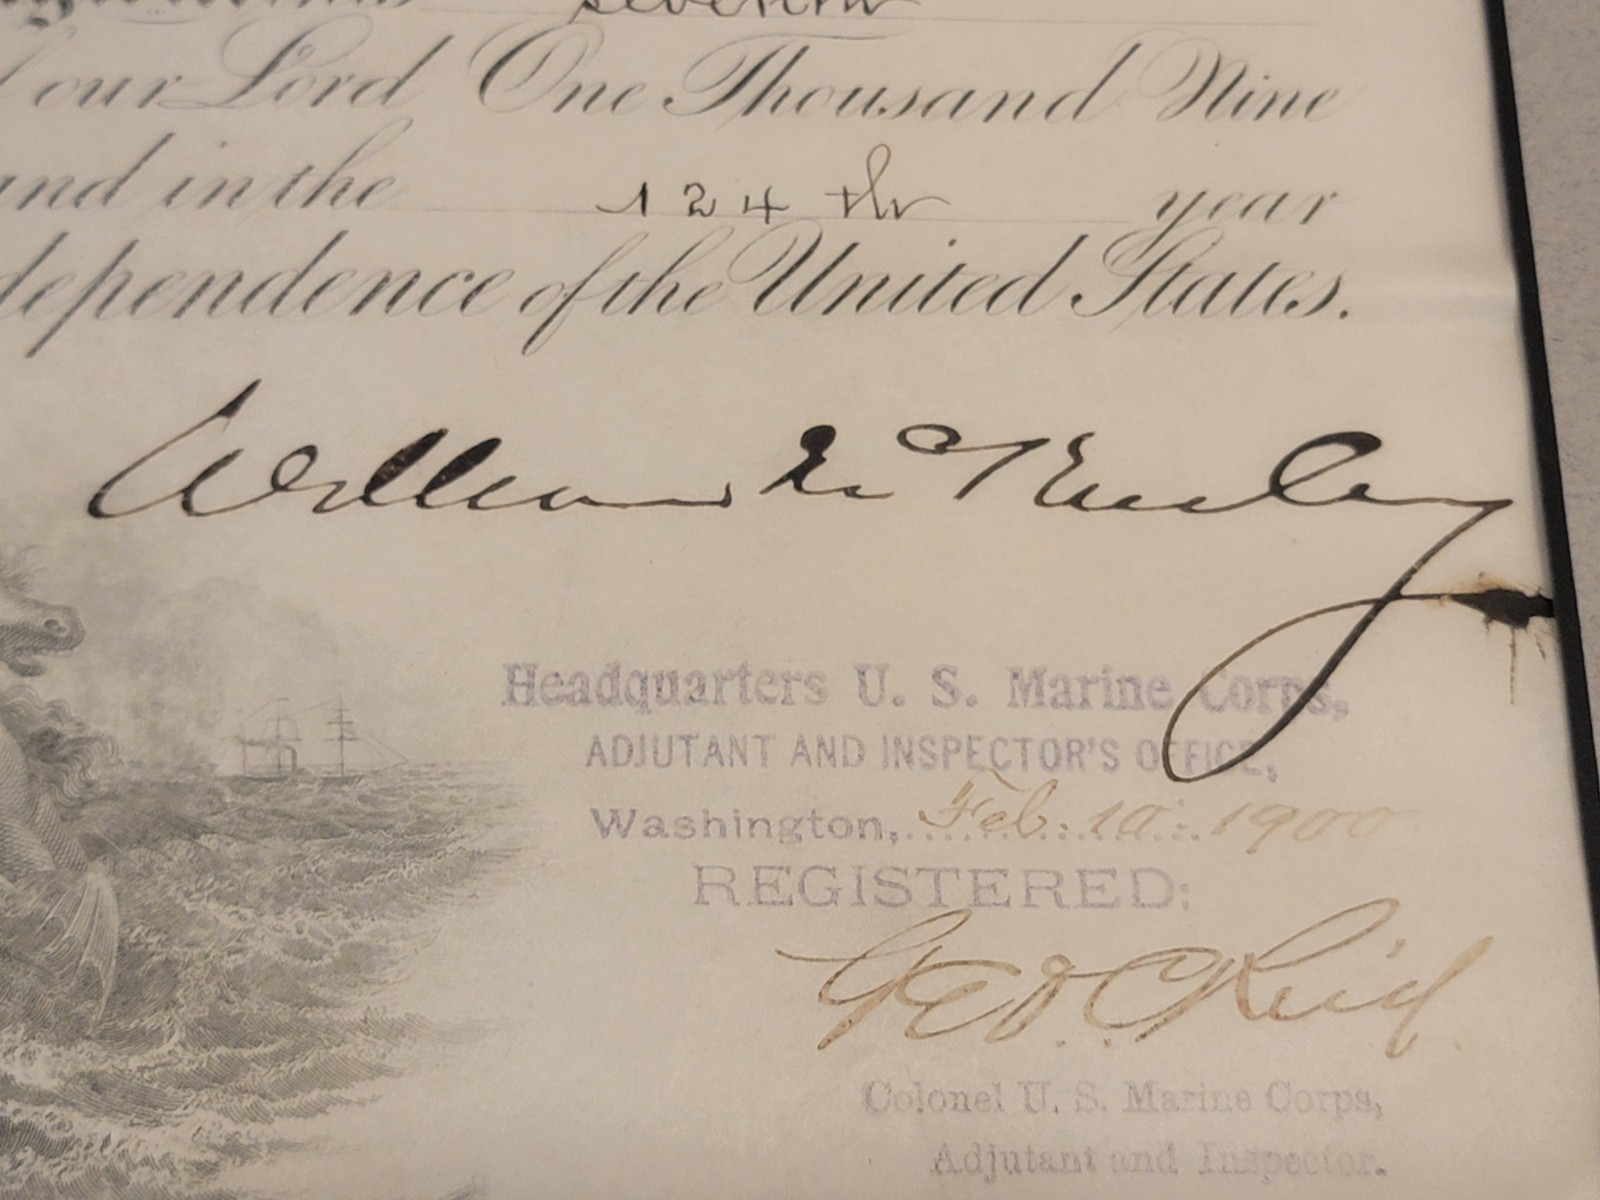 our Lord One Thousand Nine
and in the 124th year
dependence of the United States.
William McKinley
Headquarters U. S. Marine Corps,
ADJUTANT AND INSPECTOR'S OFFICE,
Washington, Feb. 10. 1900
REGISTERED:
Geo C Reid
Colonel U. S. Marine Corps,
Adjutant and Inspector.